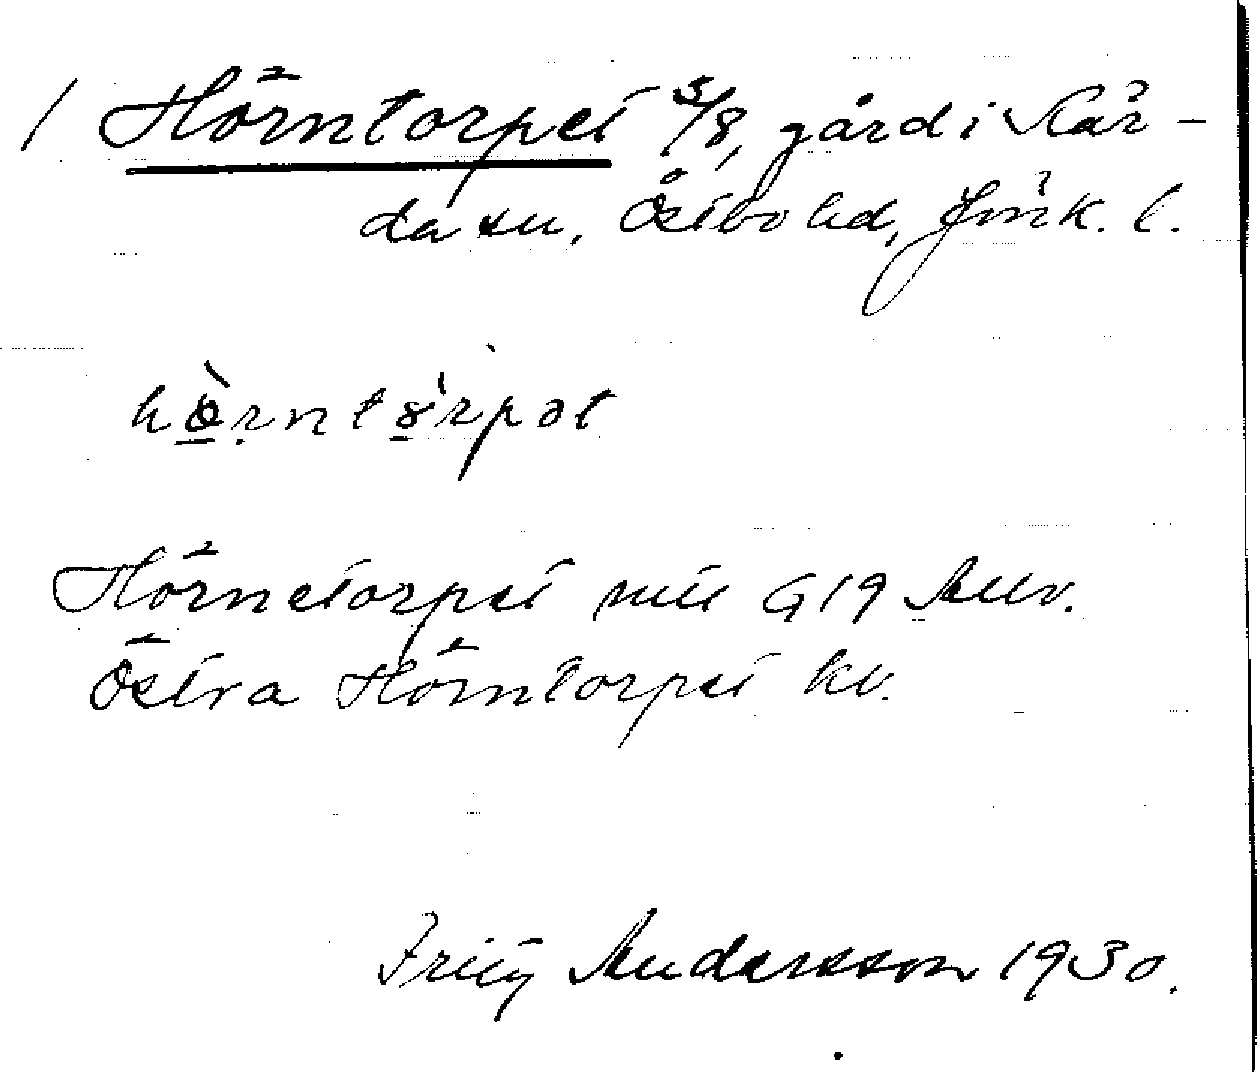 / Hörntorpet 5/8, gård i Kär-
da sn, Östbo hd, Jönk. l.
hö̀rntórpət
Hörnetorpet mtl G19 Allv.
Östra Hörntorpet kv.
Fritz Andersson 1930.